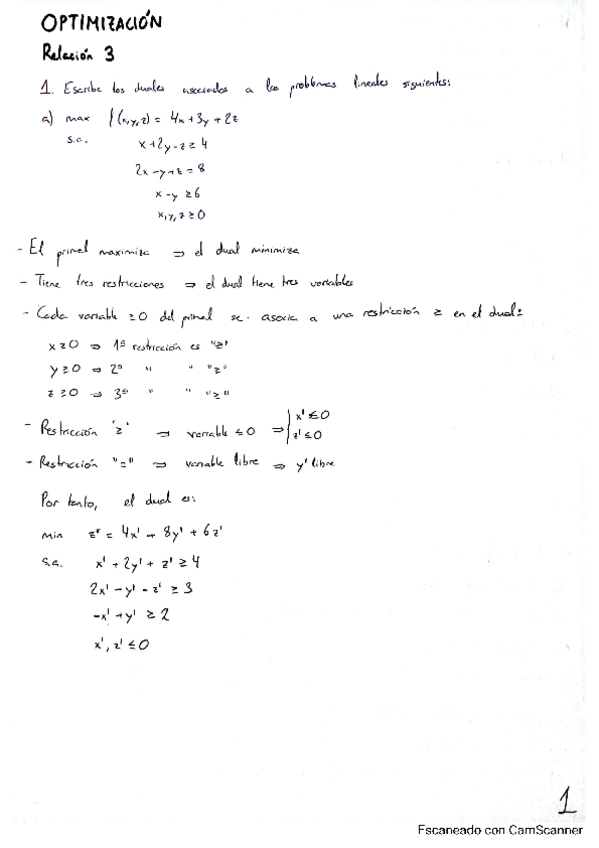 OPTIMIZACIÓN
Relación 3
1. Escribe los duales asociados a los problemas lineales siguientes:
a) max f(x,y,z) = 4x+3y+2z
s.a. x+2y-z ≥ 4
2x-y+z = 8
x-y ≥ 6
x,y,z ≥ 0
- El primal maximiza ⇒ el dual minimiza
- Tiene tres restricciones ⇒ el dual tiene tres variables
- Cada variable ≥0 del primal se asocia a una restricción ≥ en el dual:
x≥0 ⇒ 1ª restricción es "≥"
y≥0 ⇒ 2ª " " "≥"
z≥0 ⇒ 3ª " " "≥"
- Restricción "≥" ⇒ variable ≤0 ⇒ { x' ≤ 0
z' ≤ 0
- Restricción "=" ⇒ variable libre ⇒ y' libre
Por tanto, el dual es:
min z* = 4x' + 8y' + 6z'
s.a. x' + 2y' + z' ≥ 4
2x' - y' - z' ≥ 3
-x' + y' ≥ 2
x', z' ≤ 0
1
Escaneado con CamScanner